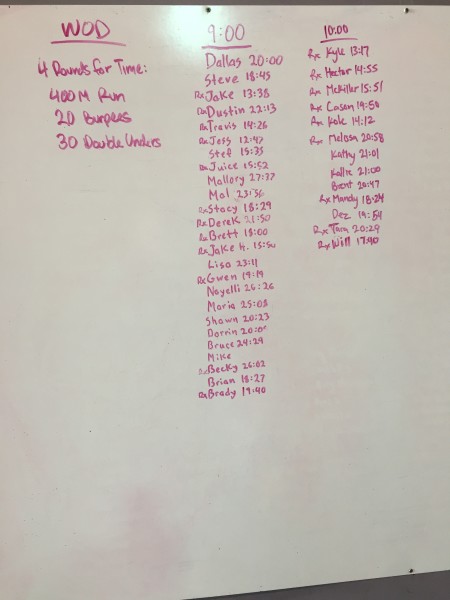 WOD
4 Rounds for Time:
400 M Run
20 Burpees
30 Double Unders
9:00
Dallas 20:00
Steve 18:45
Rx Jake 13:38
Rx Dustin 22:13
Rx Travis 14:26
Rx Jess 12:47
Stef 15:35
Rx Juice 15:52
Mallory 27:37
Mal
Rx Stacy 18:29
Rx Derek 21:50
Rx Brett 18:00
Rx Jake H. 15:50
Lisa 23:11
Rx Gwen 19:19
Nayelli 26:26
Maria 25:08
Shawn 20:23
Dorrin
Bruce 24:29
Mike
Rx Becky 26:02
Brian 18:27
Rx Brady 19:40
10:00
Rx Kyle 13:17
Rx Hector 14:55
Rx McKiller 15:51
Rx Casen 14:50
Rx Kole 14:12
Rx Melosa 20:58
Kathy 21:01
Kallie 21:00
Brent 20:47
Rx Mandy 18:24
Dez 19:54
Rx Tara 20:29
Rx Will 17:40